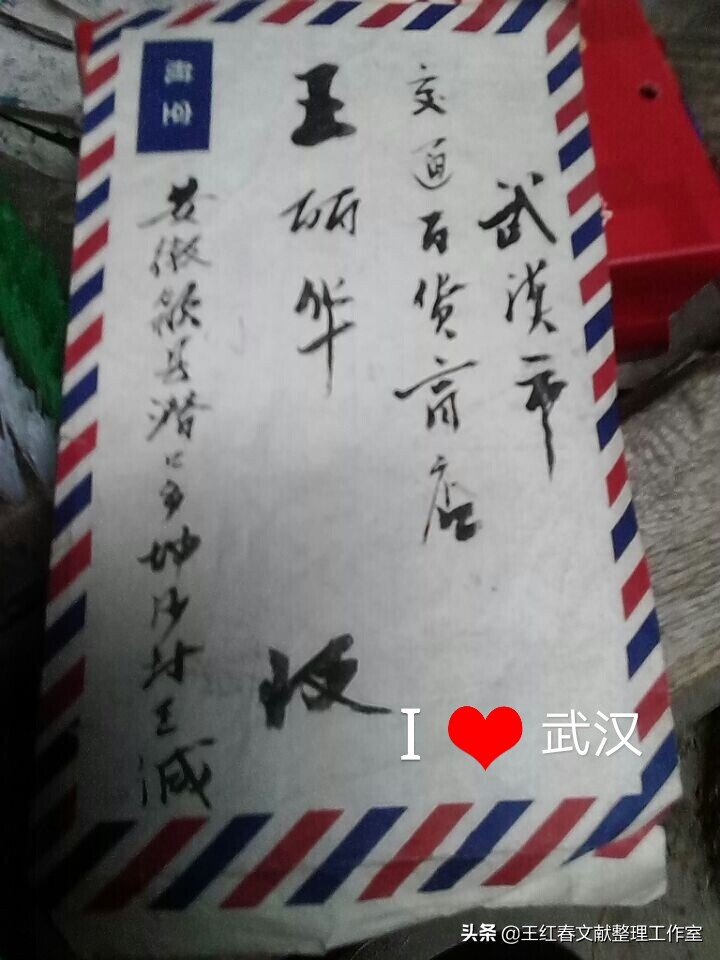 武漢市
交通百货商店
王丽华 收
安徽歙县潜口乡坤沙村王
I ❤ 武汉
头条 @王红春文献整理工作室